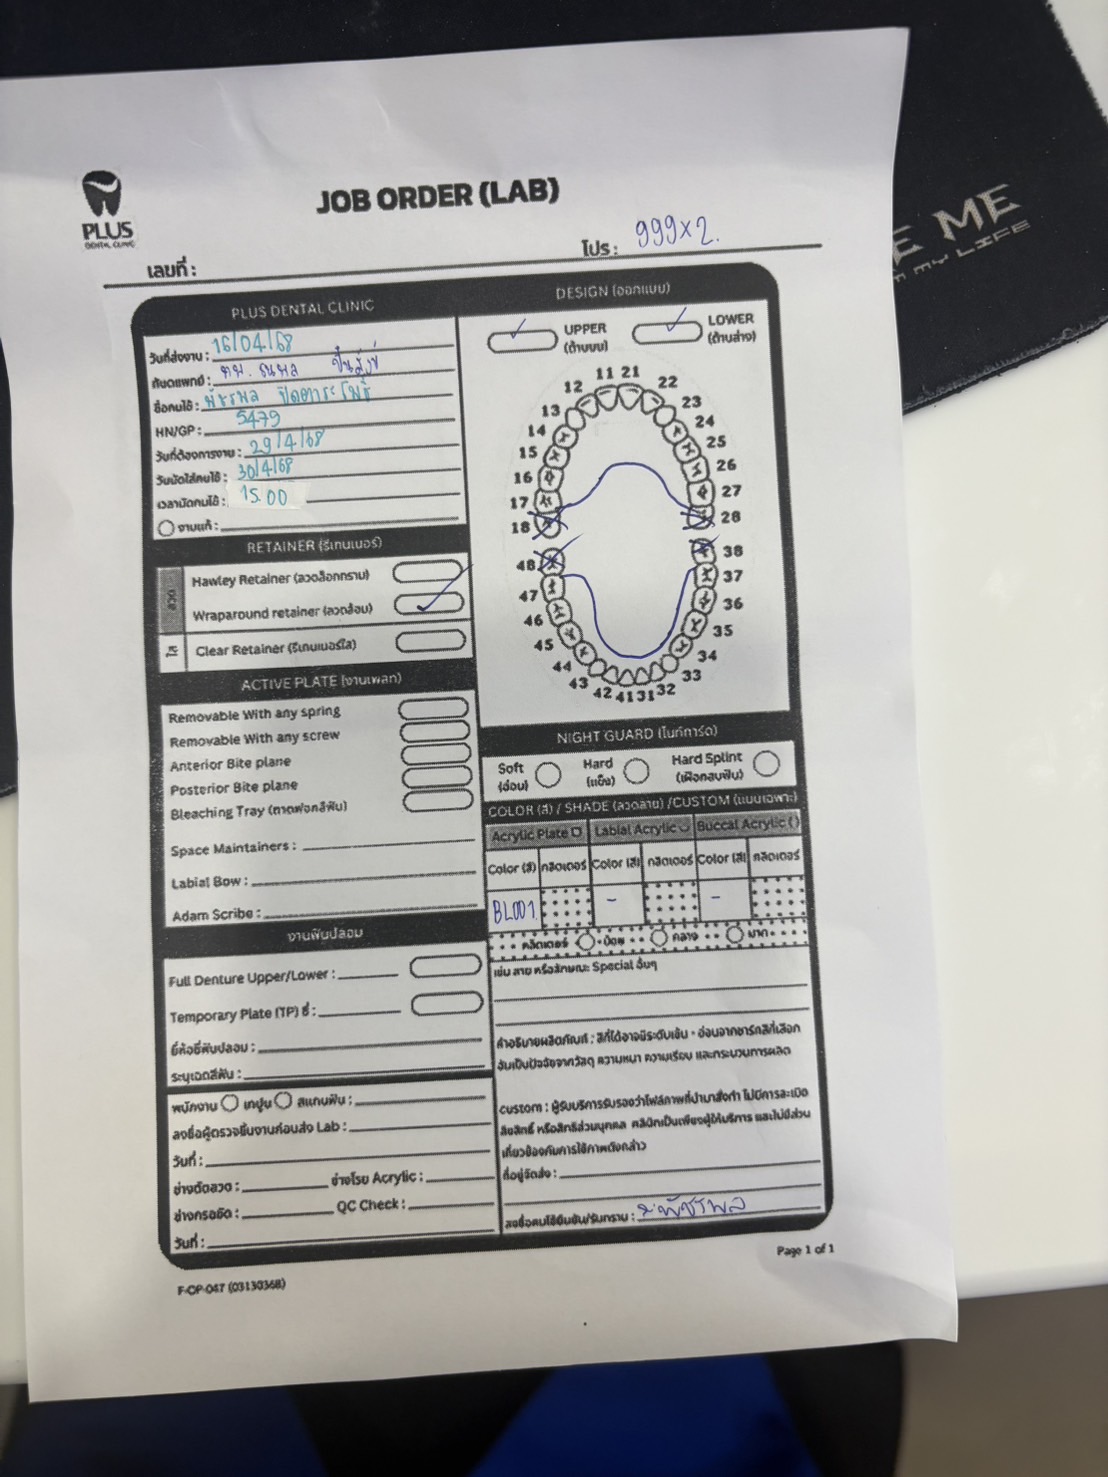 PLUS
DENTAL CLINIC
JOB ORDER (LAB)
เลขที่ :
โปร : 999x2.
PLUS DENTAL CLINIC
วันที่ส่งงาน : 16/04/68
ทันตแพทย์ : ทพ. ธนพล
ชื่อคนไข้ : พัชรพล
HN/GP : 5479
วันที่ต้องการงาน : 29/4/68
วันนัดใส่คนไข้ : 30/4/68
เวลานัดคนไข้ : 15.00
งานแก้ :
RETAINER (รีเทนเนอร์)
ลวด
Hawley Retainer (ลวดล็อกกราม)
Wraparound retainer (ลวดล้อม)
ใส
Clear Retainer (รีเทนเนอร์ใส)
ACTIVE PLATE (งานเพลท)
Removable With any spring
Removable With any screw
Anterior Bite plane
Posterior Bite plane
Bleaching Tray (ถาดฟอกสีฟัน)
Space Maintainers :
Labial Bow :
Adam Scribe :
งานฟันปลอม
Full Denture Upper/Lower :
Temporary Plate (TP) ซี่ :
ยี่ห้อซี่ฟันปลอม :
ระบุเฉดสีฟัน :
พนักงาน เทปูน สแกนฟัน :
ลงชื่อผู้ตรวจชิ้นงานก่อนส่ง Lab :
วันที่ :
ช่างดัดลวด : ช่างโรย Acrylic :
ช่างกรอขัด : QC Check :
วันที่ :
DESIGN (ออกแบบ)
UPPER
(ด้านบน)
LOWER
(ด้านล่าง)
11 21
12 22
13 23
14 24
15 25
16 26
17 27
18 28
48 38
47 37
46 36
45 35
44 34
43 33
42 41 31 32
NIGHT GUARD (ไนท์การ์ด)
Soft
(อ่อน)
Hard
(แข็ง)
Hard Splint
(เฝือกสบฟัน)
COLOR (สี) / SHADE (ลวดลาย) /CUSTOM (แบบเฉพาะ)
Acrylic Plate Labial Acrylic Buccal Acrylic
Color (สี) กลิตเตอร์ Color (สี) กลิตเตอร์ Color (สี) กลิตเตอร์
BL001 - -
กลิตเตอร์ น้อย กลาง มาก
เช่น ลาย หรือลักษณะ Special อื่นๆ
คำอธิบายผลิตภัณฑ์ : สีที่ได้อาจมีระดับเข้ม - อ่อนจากชาร์ทสีที่เลือก
อันเป็นปัจจัยจากวัสดุ ความหนา ความเรียบ และกระบวนการผลิต
custom : ผู้รับบริการรับรองว่าไฟล์ภาพที่นำมาสั่งทำ ไม่มีการละเมิด
ลิขสิทธิ์ หรือสิทธิส่วนบุคคล คลินิกเป็นเพียงผู้ให้บริการ และไม่มีส่วน
เกี่ยวข้องกับการใช้ภาพดังกล่าว
ที่อยู่จัดส่ง :
ลงชื่อคนไข้ยืนยัน/รับทราบ : พัชรพล
Page 1 of 1
F-OP-047 (03130368)